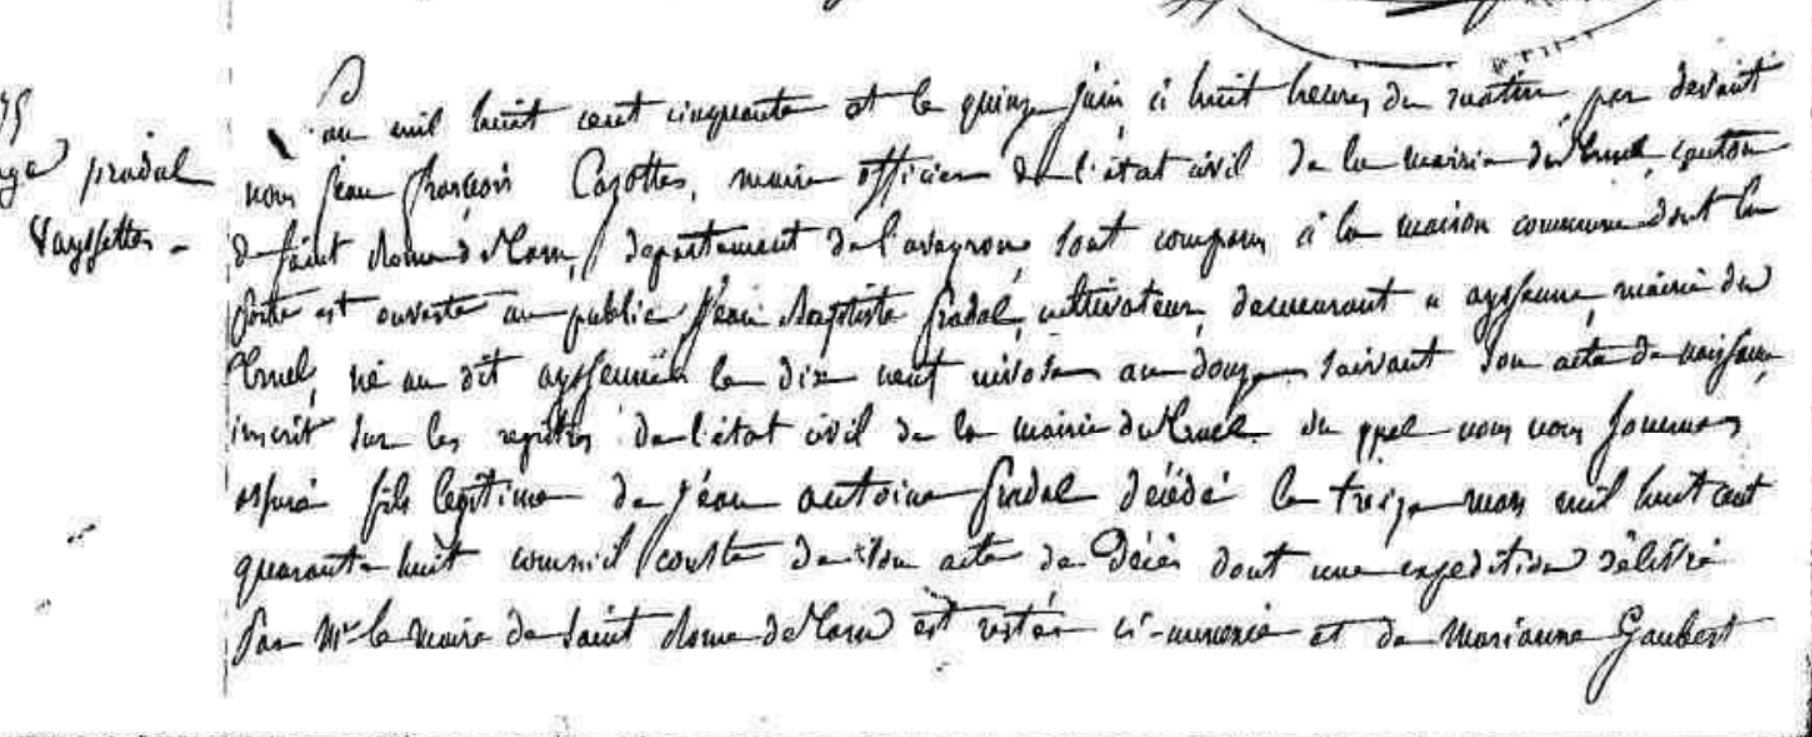 pradal
Vayssettes -
an mil huit cent cinquante et le quinze juin à huit heures du matin, par devant
nous jean françois Cazottes, maire officier de l'état civil de la mairie du truel, canton
de saint Rome de Tarn, departement de l'aveyron, sont comparus à la maison commune dont la
porte est ouverte au public jean Baptiste pradal, cultivateur, demeurant a ayssenne, mairie du
truel, né au dit ayssennes le dix neuf nivose an douze suivant son acte de naissance
inscrit sur les registres de l'état civil de la mairie du truel du quel nous nous sommes
assuré fils legitime de jean antoine pradal décédé le treize mars mil huit cent
quarante huit comme il conste de son acte de Décès dont une expedition délivré
Par Mr le maire de saint Rome de Tarn est restée ci-annexée et de marianne Gaubert